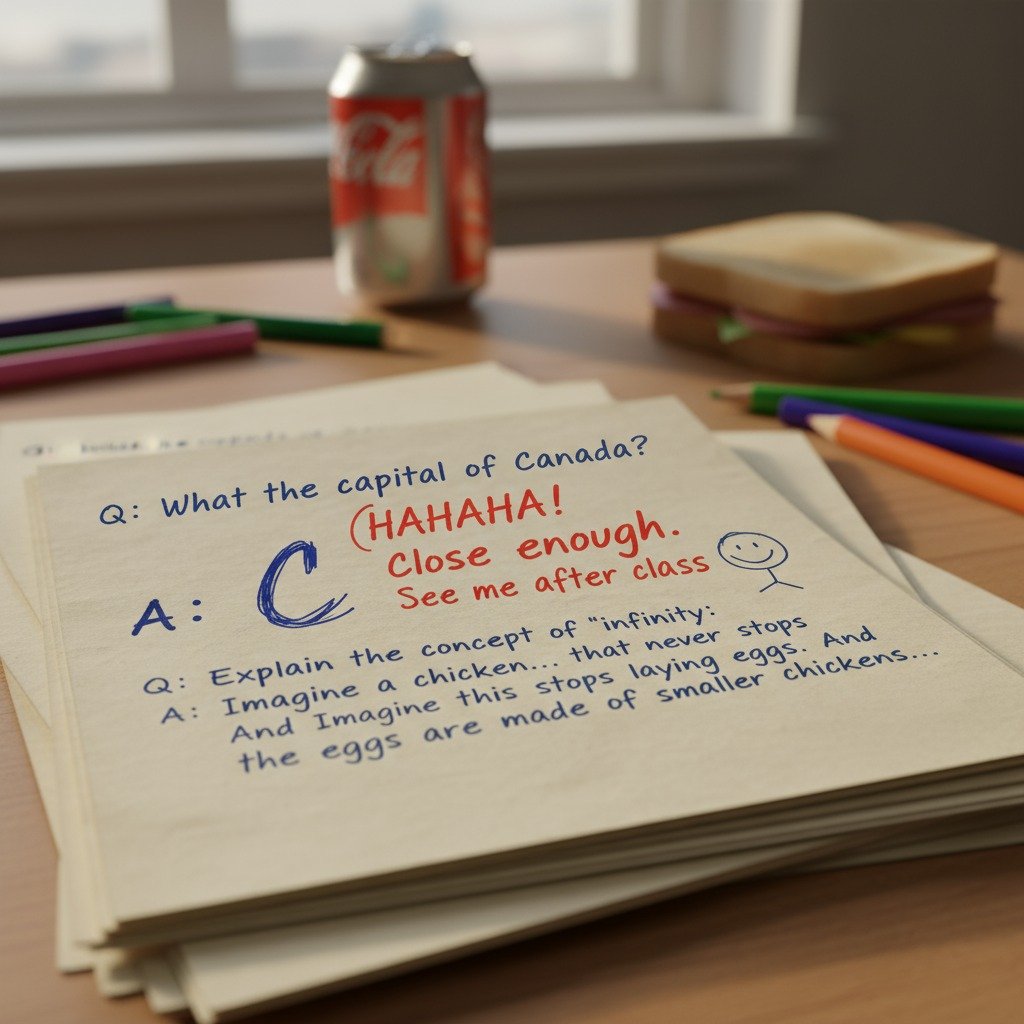 Cola
Q: What the capital of Canada?
(HAHAHA!
A: C
Close enough.
See me after class
Q: Explain the concept of "infinity:
A: Imagine a chicken... that never stops
And Imagine this stops laying eggs. And
the eggs are made of smaller chickens...